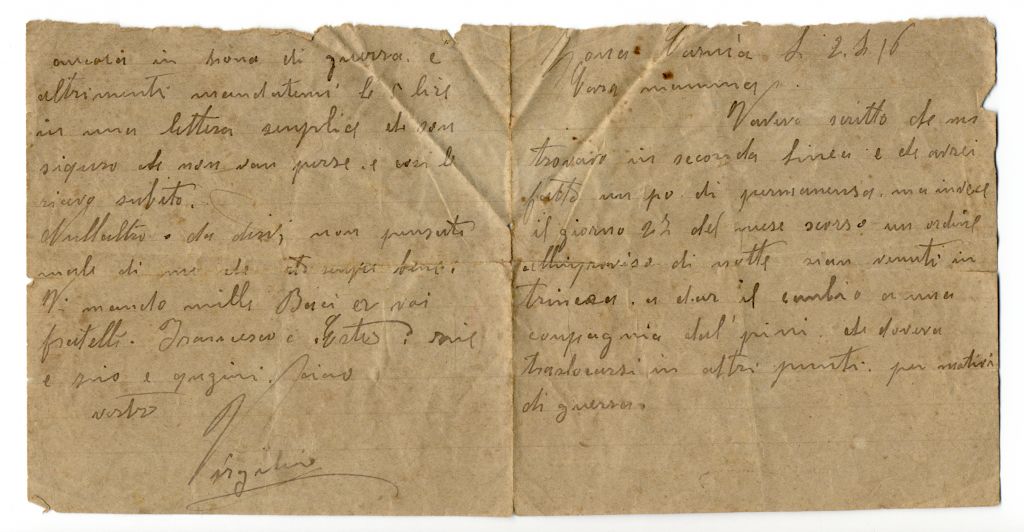 Zona Carnia li 2.4 16
Cara mamma.
Vavevo scritto che mi
trovavo in seconda linea e che avrei
fatto un po di permanensa. ma invece
il giorno 27 del mese scorso un ordine
allimproviso di notte sian venuti in
trincea. a dar il cambio a una
conpagnia dal'pini che doveva
traslocarsi in altri punti. per motivi
di guerra.
ancora in zona di guerra. e
altrimenti mandatemi le 5 lire
in una lettera senplice che son
siguro che non van perse. e cosi le
ricevo subito.
Nullaltro da dirvi, non pensate
male di me che sto senpre bene.
Vi mando mille Baci er voi
fratelli. Francesco e Ester
e zio e qugini. ciao
vostro
Virgilio